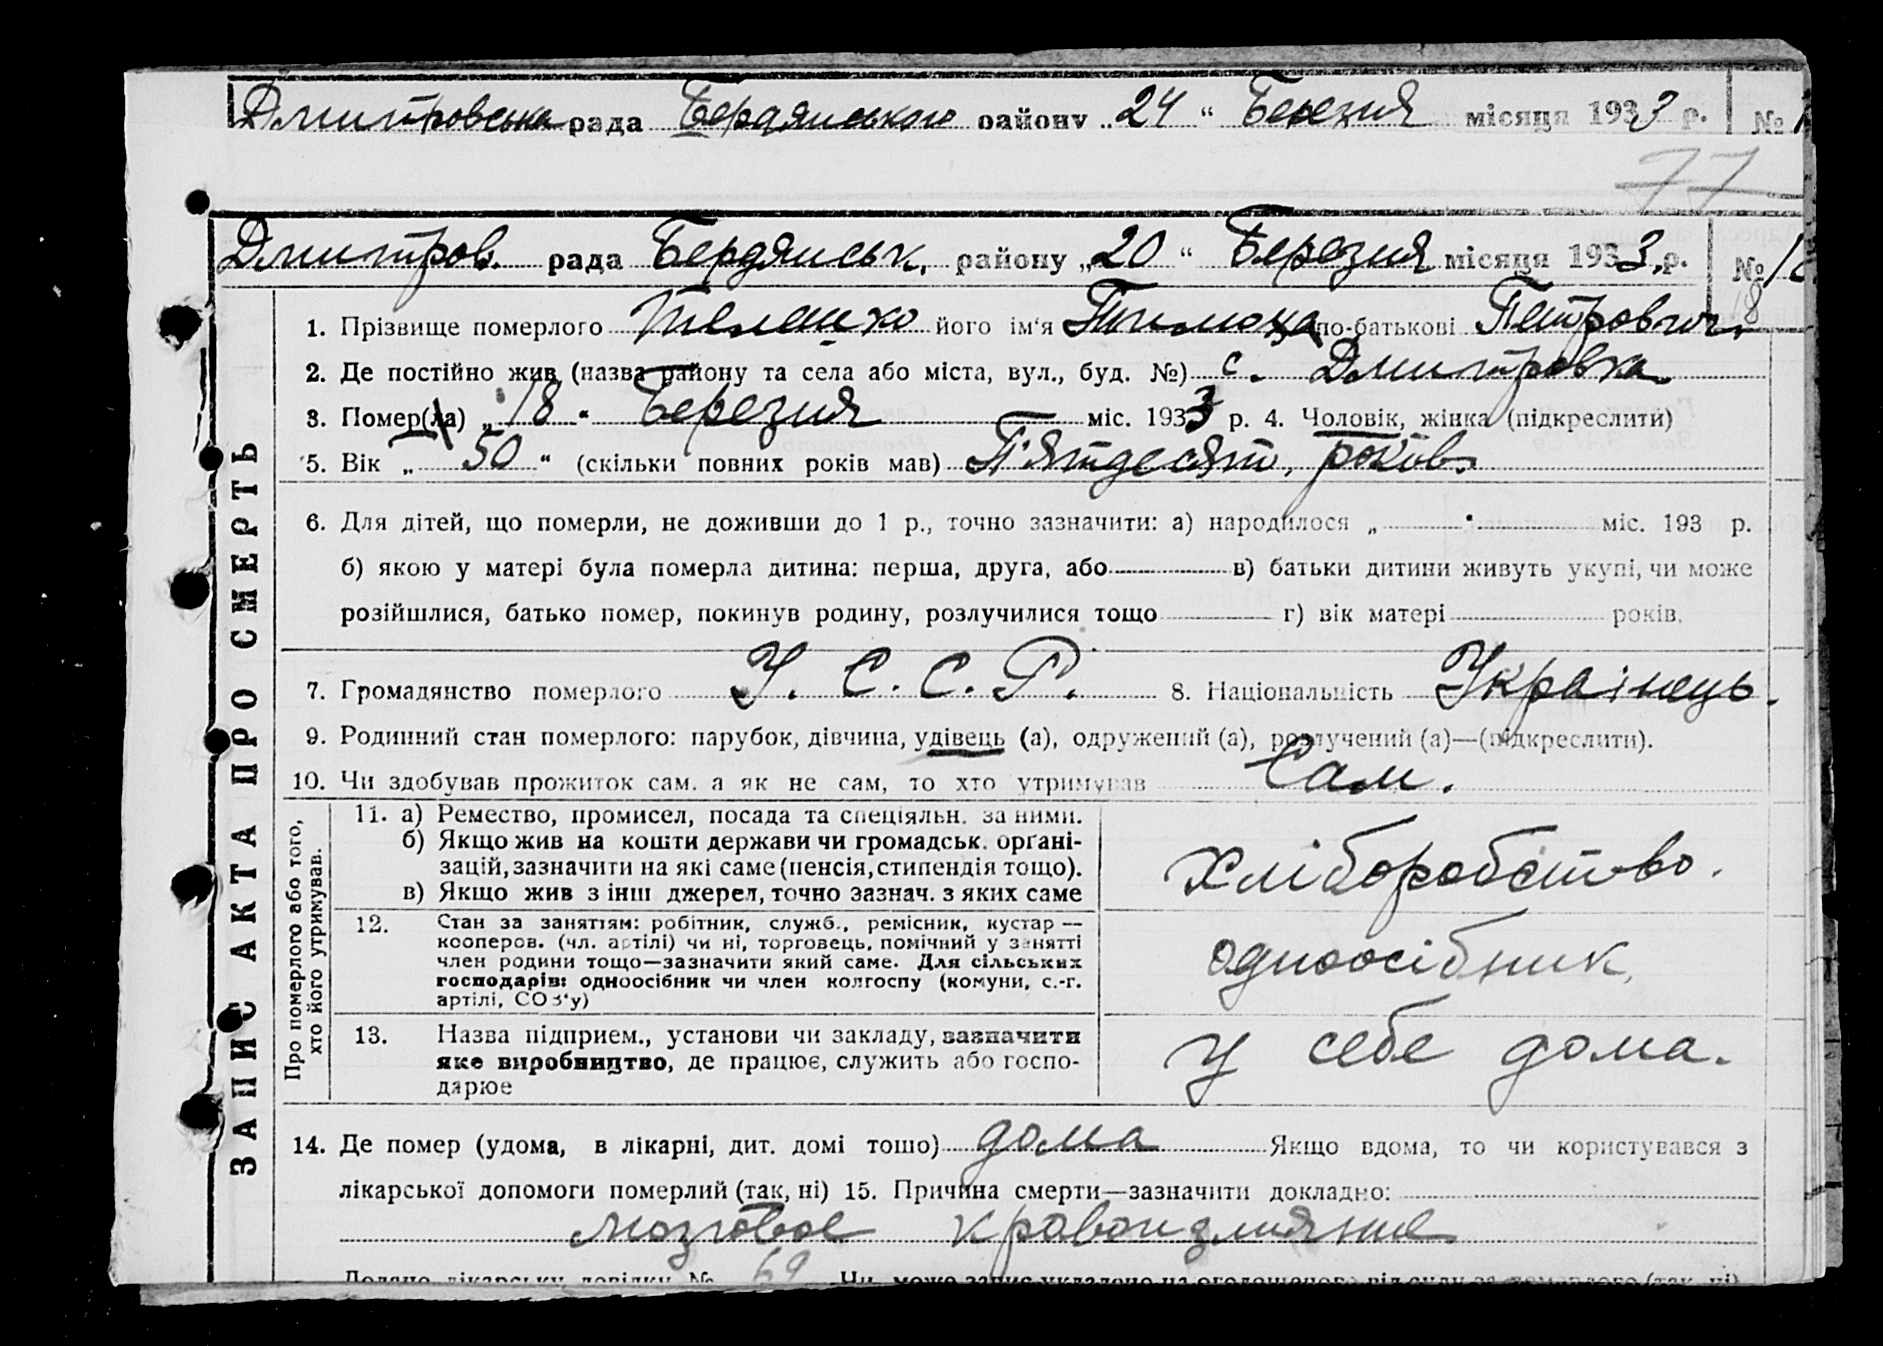 Дмитровська рада Бердянського району „ 24 “ Березня місяця 1933 р. №
77
Дмитров. рада Бердянськ. району „ 20 “ Березня місяця 1933. р. №
18
1. Прізвище померлого його ім'я по-батькові Петрович
2. Де постійно жив (назва району та села або міста, вул., буд. №) с. Дмитровка
3. Помер(ла) „ 18 “ Березня міс. 1933 р. 4. Чоловік, жінка (підкреслити)
5. Вік „ 50 “ (скільки повних років мав) П'ятдесят, років.
6. Для дітей, що померли, не доживши до 1 р., точно зазначити: а) народилося „ “ міс. 193 р.
б) якою у матері була померла дитина: перша, друга, або в) батьки дитини живуть укупі, чи може
розійшлися, батько помер, покинув родину, розлучилися тощо г) вік матері років.
7. Громадянство померлого У. С. С. Р. 8. Національність Українець.
9. Родинний стан померлого: парубок, дівчина, удівець (а), одружений (а), розлучений (а)—(підкреслити).
10. Чи здобував прожиток сам, а як не сам, то хто утримував Сам.
ЗАПИС АКТА ПРО СМЕРТЬ
Про померлого або того,
хто його утримував.
11. а) Ремество, промисел, посада та спеціяльн. за ними.
б) Якщо жив на кошти держави чи громадськ. орґані-
зацій, зазначити на які саме (пенсія, стипендія тощо).
в) Якщо жив з інш джерел, точно зазнач. з яких саме
Хліборобство.
12. Стан за заняттям: робітник, служб., ремісник, кустар —
кооперов. (чл. артілі) чи ні, торговець, помічний у занятті
член родини тощо—зазначити який саме. Для сільських
господарів: одноосібник чи член колгоспу (комуни, с.-г.
артілі, СОЗ'у)
одноосібник,
13. Назва підприєм., установи чи закладу, зазначити
яке виробництво, де працює, служить або госпо-
дарює
у себе дома.
14. Де помер (удома, в лікарні, дит. домі тощо) дома Якщо вдома, то чи користувався з
лікарської допомоги померлий (так, ні) 15. Причина смерти—зазначити докладно:
мозговое кровоизлияние
Додано лікарську довідку № 69 Чи може запис укладено на оголошеного від суду за померлого (так, ні)